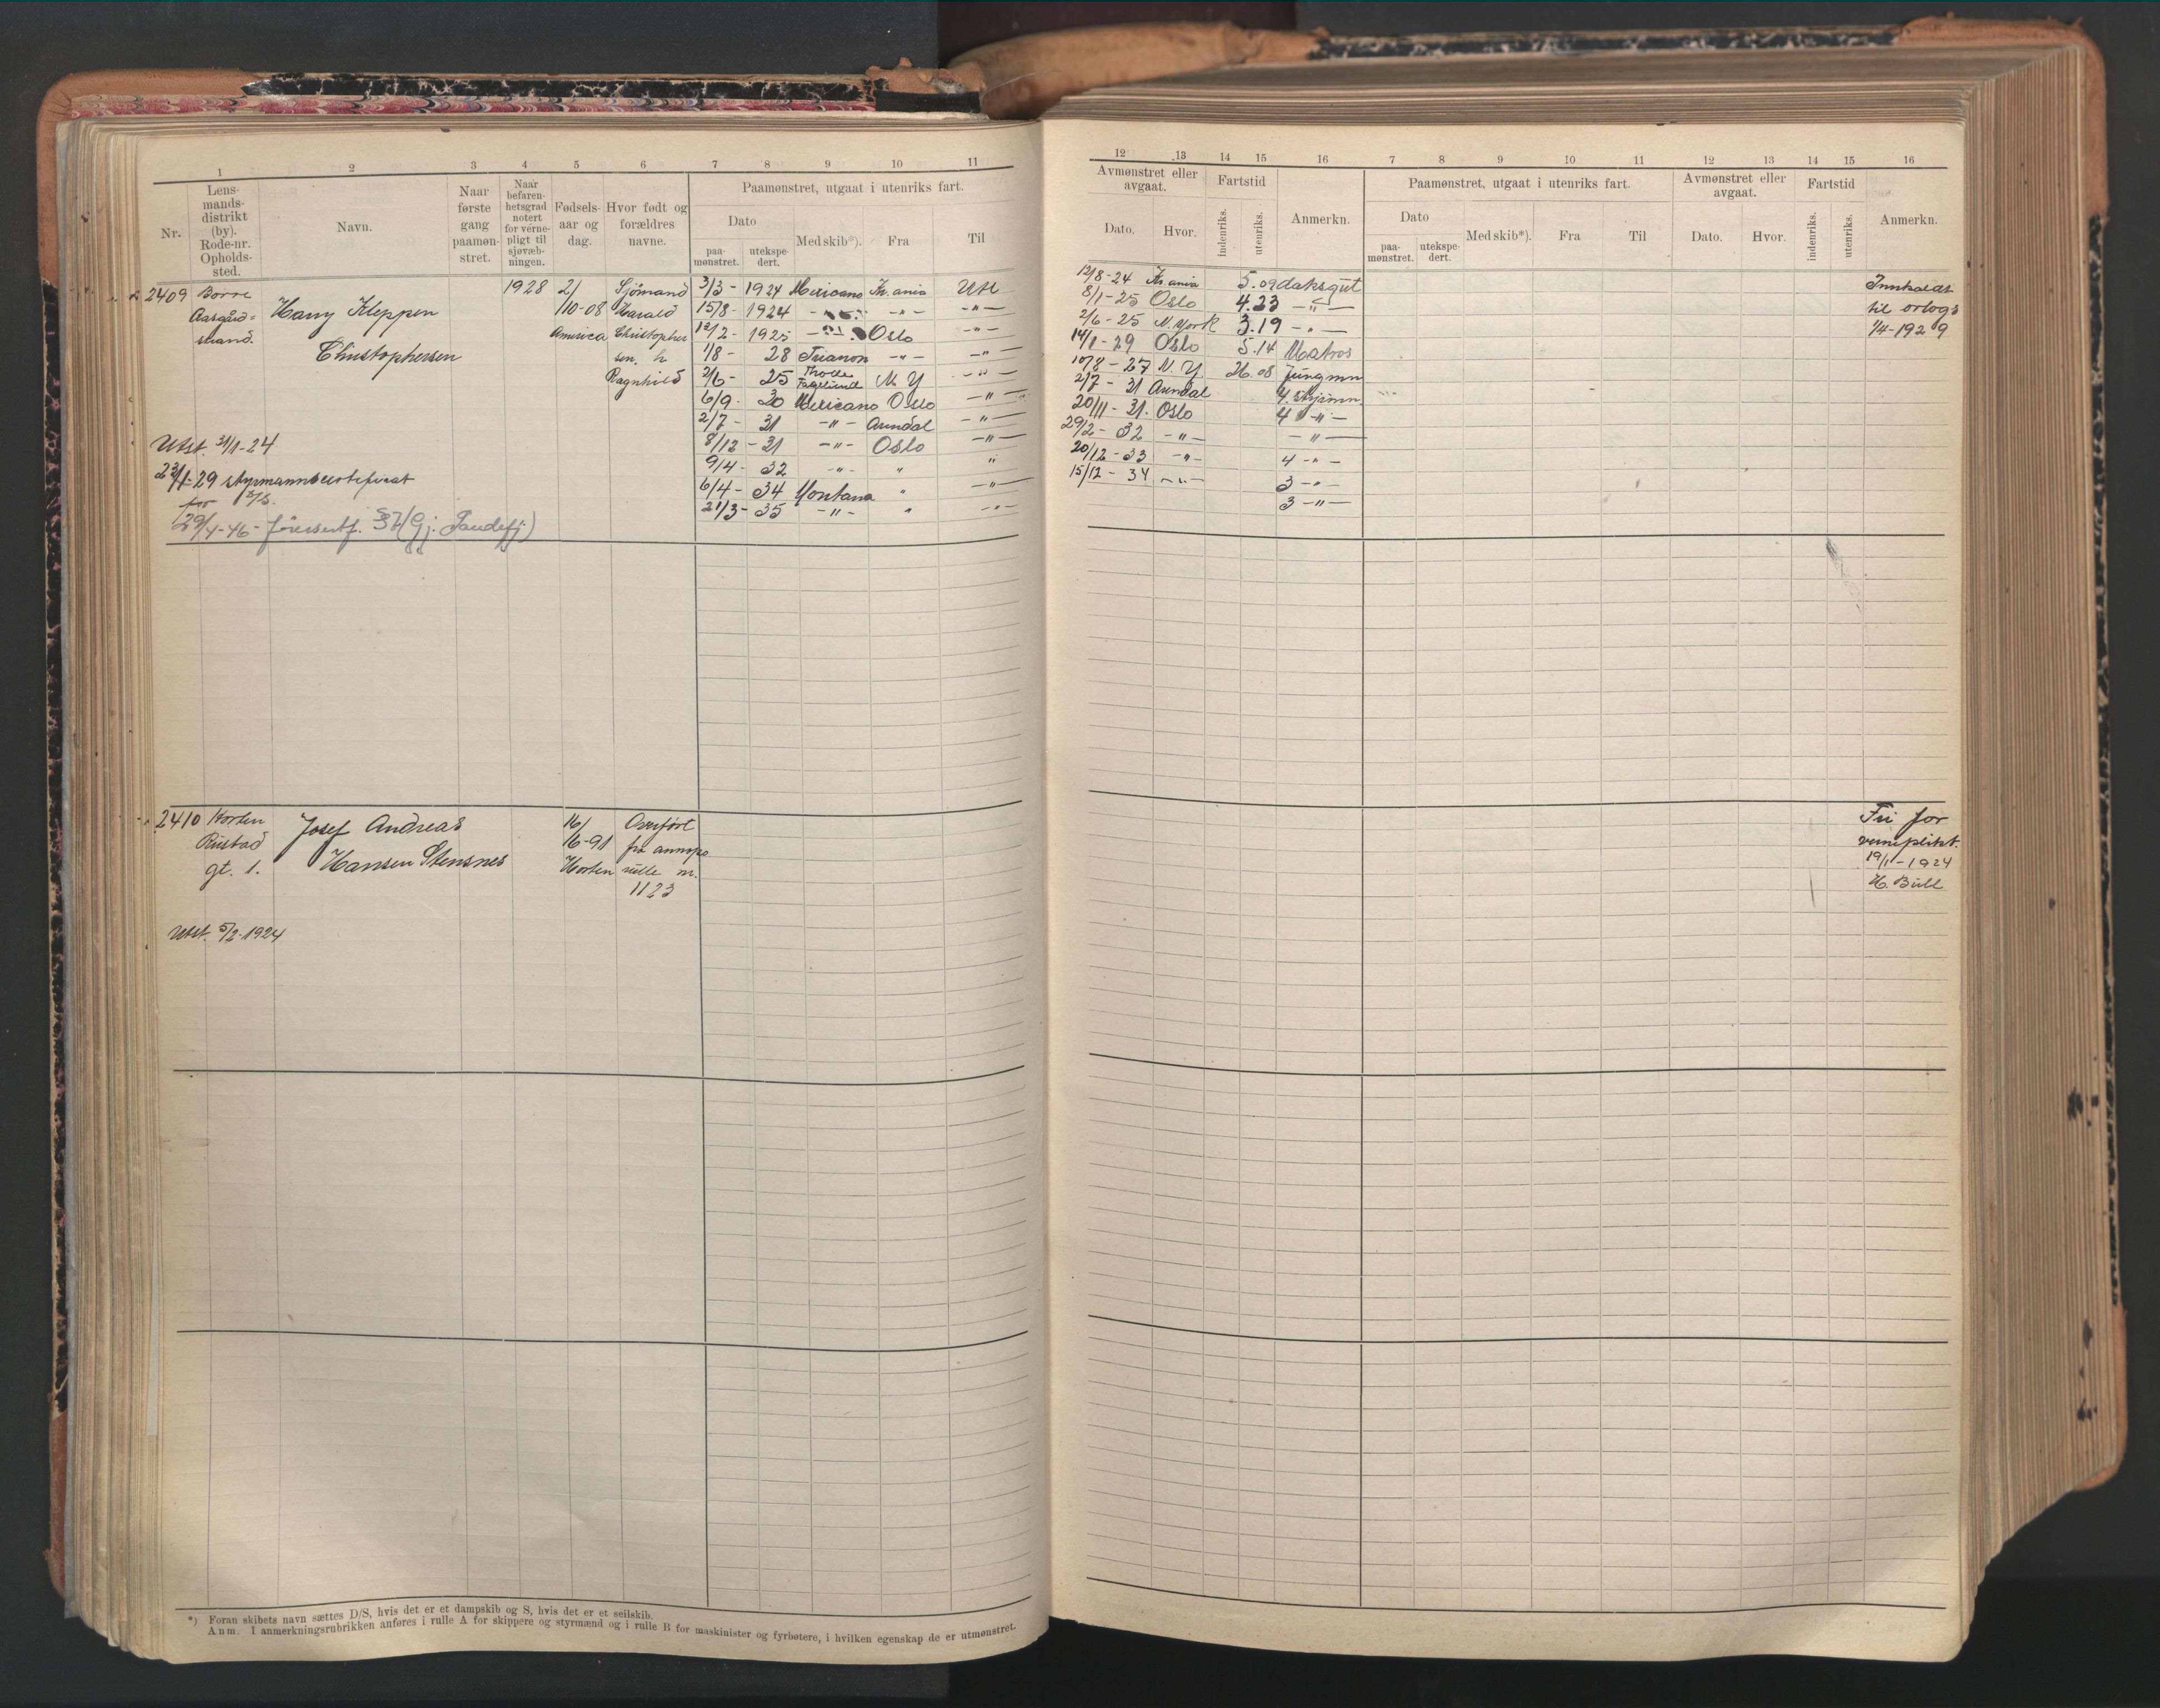 1 2 3 4 5 6 7 8 9 10 11
Nr. Lensmandsdistrikt (by). Rode-nr. Opholdssted. Navn. Naar første gang paamønstret. Naar befarenhetsgrad notert for vernepligt til sjøvæbningen. Fødselsaar og dag. Hvor født og forældres navne. Paamønstret, utgaat i utenriks fart.
Dato Med skib*). Fra Til
paamønstret. utekspedert.
2409 Borre Harry Kleppen 1928 2/ Sjömand 3/3 - 1924 Mexicano Kr.ania Utl
Aasgård= 10-08 Harald 15/8 - 1924 - " - - " - - " -
strand. Christophersen America Christopher 12/2 - 1925 - " - Oslo - " -
sen, h 1/8 - 28 Trianon - " - - " -
Ragnhild 2/6 - 25 Thode Fagelund N. Y - " -
6/9 - 30 Mexicano Oslo - " -
2/7 - 31 - " - Arendal - " -
Utst. 31/1-24 8/12 - 31 - " - Oslo - " -
23/1-29 styrmannscertificat 9/4 - 32 - " - " "
for D/S. 6/4 - 34 Montana " - " -
29/4-46 - førersertf. (Gj. Sandefj.) 21/3 - 35 - " - " - " -
2410 Horten Josef Andreas 16/ Overført
Rustad Hansen Stensnes 16-91 fra annspo
gt. 1. Horten rulle nr.
1123
Utst. 5/2-1924
*) Foran skibets navn sættes D/S, hvis det er et dampskib og S, hvis det er et seilskib.
Anm. I anmerkningsrubrikken anføres i rulle A for skippere og styrmænd og i rulle B for maskinister og fyrbøtere, i hvilken egenskap de er utmønstret.
12 13 14 15 16 7 8 9 10 11 12 13 14 15 16
Avmønstret eller avgaat. Fartstid Anmerkn. Paamønstret, utgaat i utenriks fart. Avmønstret eller avgaat. Fartstid Anmerkn.
Dato. Hvor. indenriks. utenriks. Dato Med skib*). Fra Til Dato. Hvor. indenriks. utenriks.
paamønstret. utekspedert.
12/8-24 Kr.ania 5.09 daksgut Innkaldt
8/1-25 Oslo 4.23 - " - til orlogs
2/6-25 N. York 3.19 - " - 1/4-1929
14/1-29 Oslo 5.14 Matros
10/8-27 N. Y 26.08 Jungmn
2/7-31 Arendal 4. styrmn.
20/11-31. Oslo 4 - " -
29/2-32 - " - - " -
20/12-33 - " - 4 - " -
15/12-34 - " - 3 - " -
3 - " -
Fri for
verneplikt.
19/1-1924
H. Bull